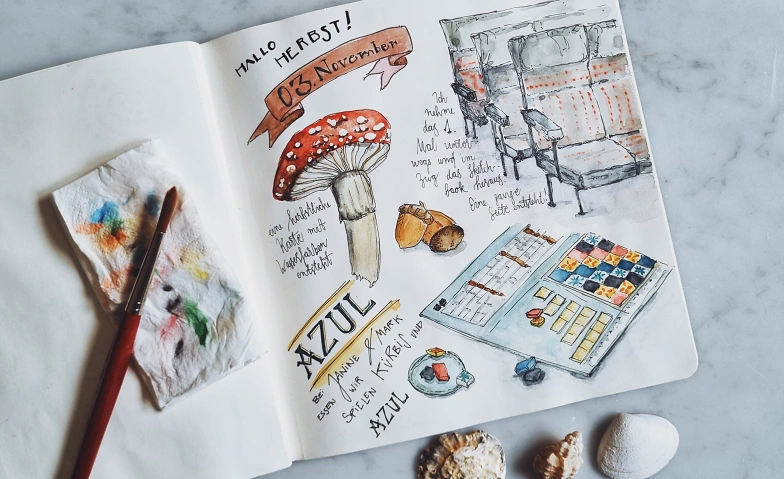 HALLO HERBST!
03. November
Ich
nehme
das 1.
Mal unter-
wegs und im
Zug das Sketch-
book heraus.
Eine ganze
Seite entsteht!
eine herbstliche
Karte mit
Wasserfarben
entsteht
AZUL
BEI JANINE & MARK
ESSEN WIR KÜRBIS UND
SPIELEN
AZUL